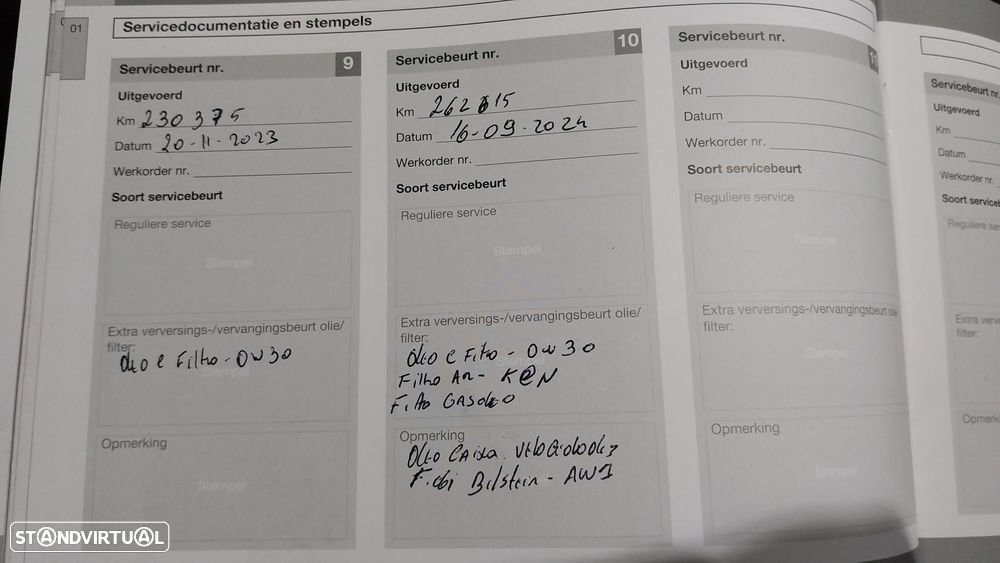 01
Servicedocumentatie en stempels
Servicebeurt nr. 9
Uitgevoerd
Km 230 375
Datum 20-11-2023
Werkorder nr.
Soort servicebeurt
Reguliere service
Stempel
Extra verversings-/vervangingsbeurt olie/
filter:
Óleo e Filtro - 0W30
Opmerking
Stempel
Servicebeurt nr. 10
Uitgevoerd
Km 262 815
Datum 16-09-2024
Werkorder nr.
Soort servicebeurt
Reguliere service
Stempel
Extra verversings-/vervangingsbeurt olie/
filter:
Óleo e Filtro - 0W30
Filtro Ar - K@N
Filtro Gasoleo
Opmerking
Óleo Caixa Velocidades
Febi Bilstein - AW1
Servicebeurt nr. 11
Uitgevoerd
Km
Datum
Werkorder nr.
Soort servicebeurt
Reguliere service
Stempel
Extra verversings-/vervangingsbeurt olie
filter:
Stempel
Opmerking
Stempel
Servicebeurt nr.
Uitgevoerd
Km
Datum
Werkorder nr.
Soort serviceb
Reguliere ser
Extra verve
filter:
Opmerki
STANDVIRTUAL